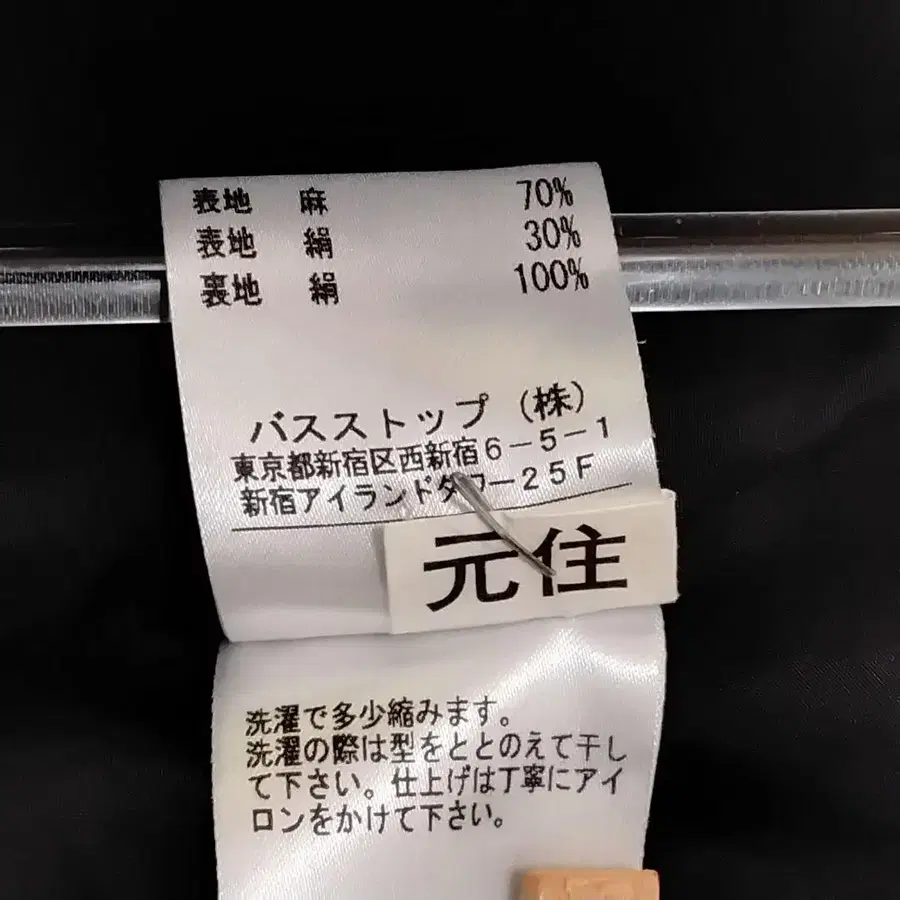 表地 麻 70%
表地 絹 30%
裏地 絹 100%
バスストップ (株)
東京都新宿区西新宿6-5-1
新宿アイランドタワー25F
元住
洗濯で多少縮みます。
洗濯の際は型をととのえて干し
て下さい。仕上げは丁寧にアイ
ロンをかけて下さい。